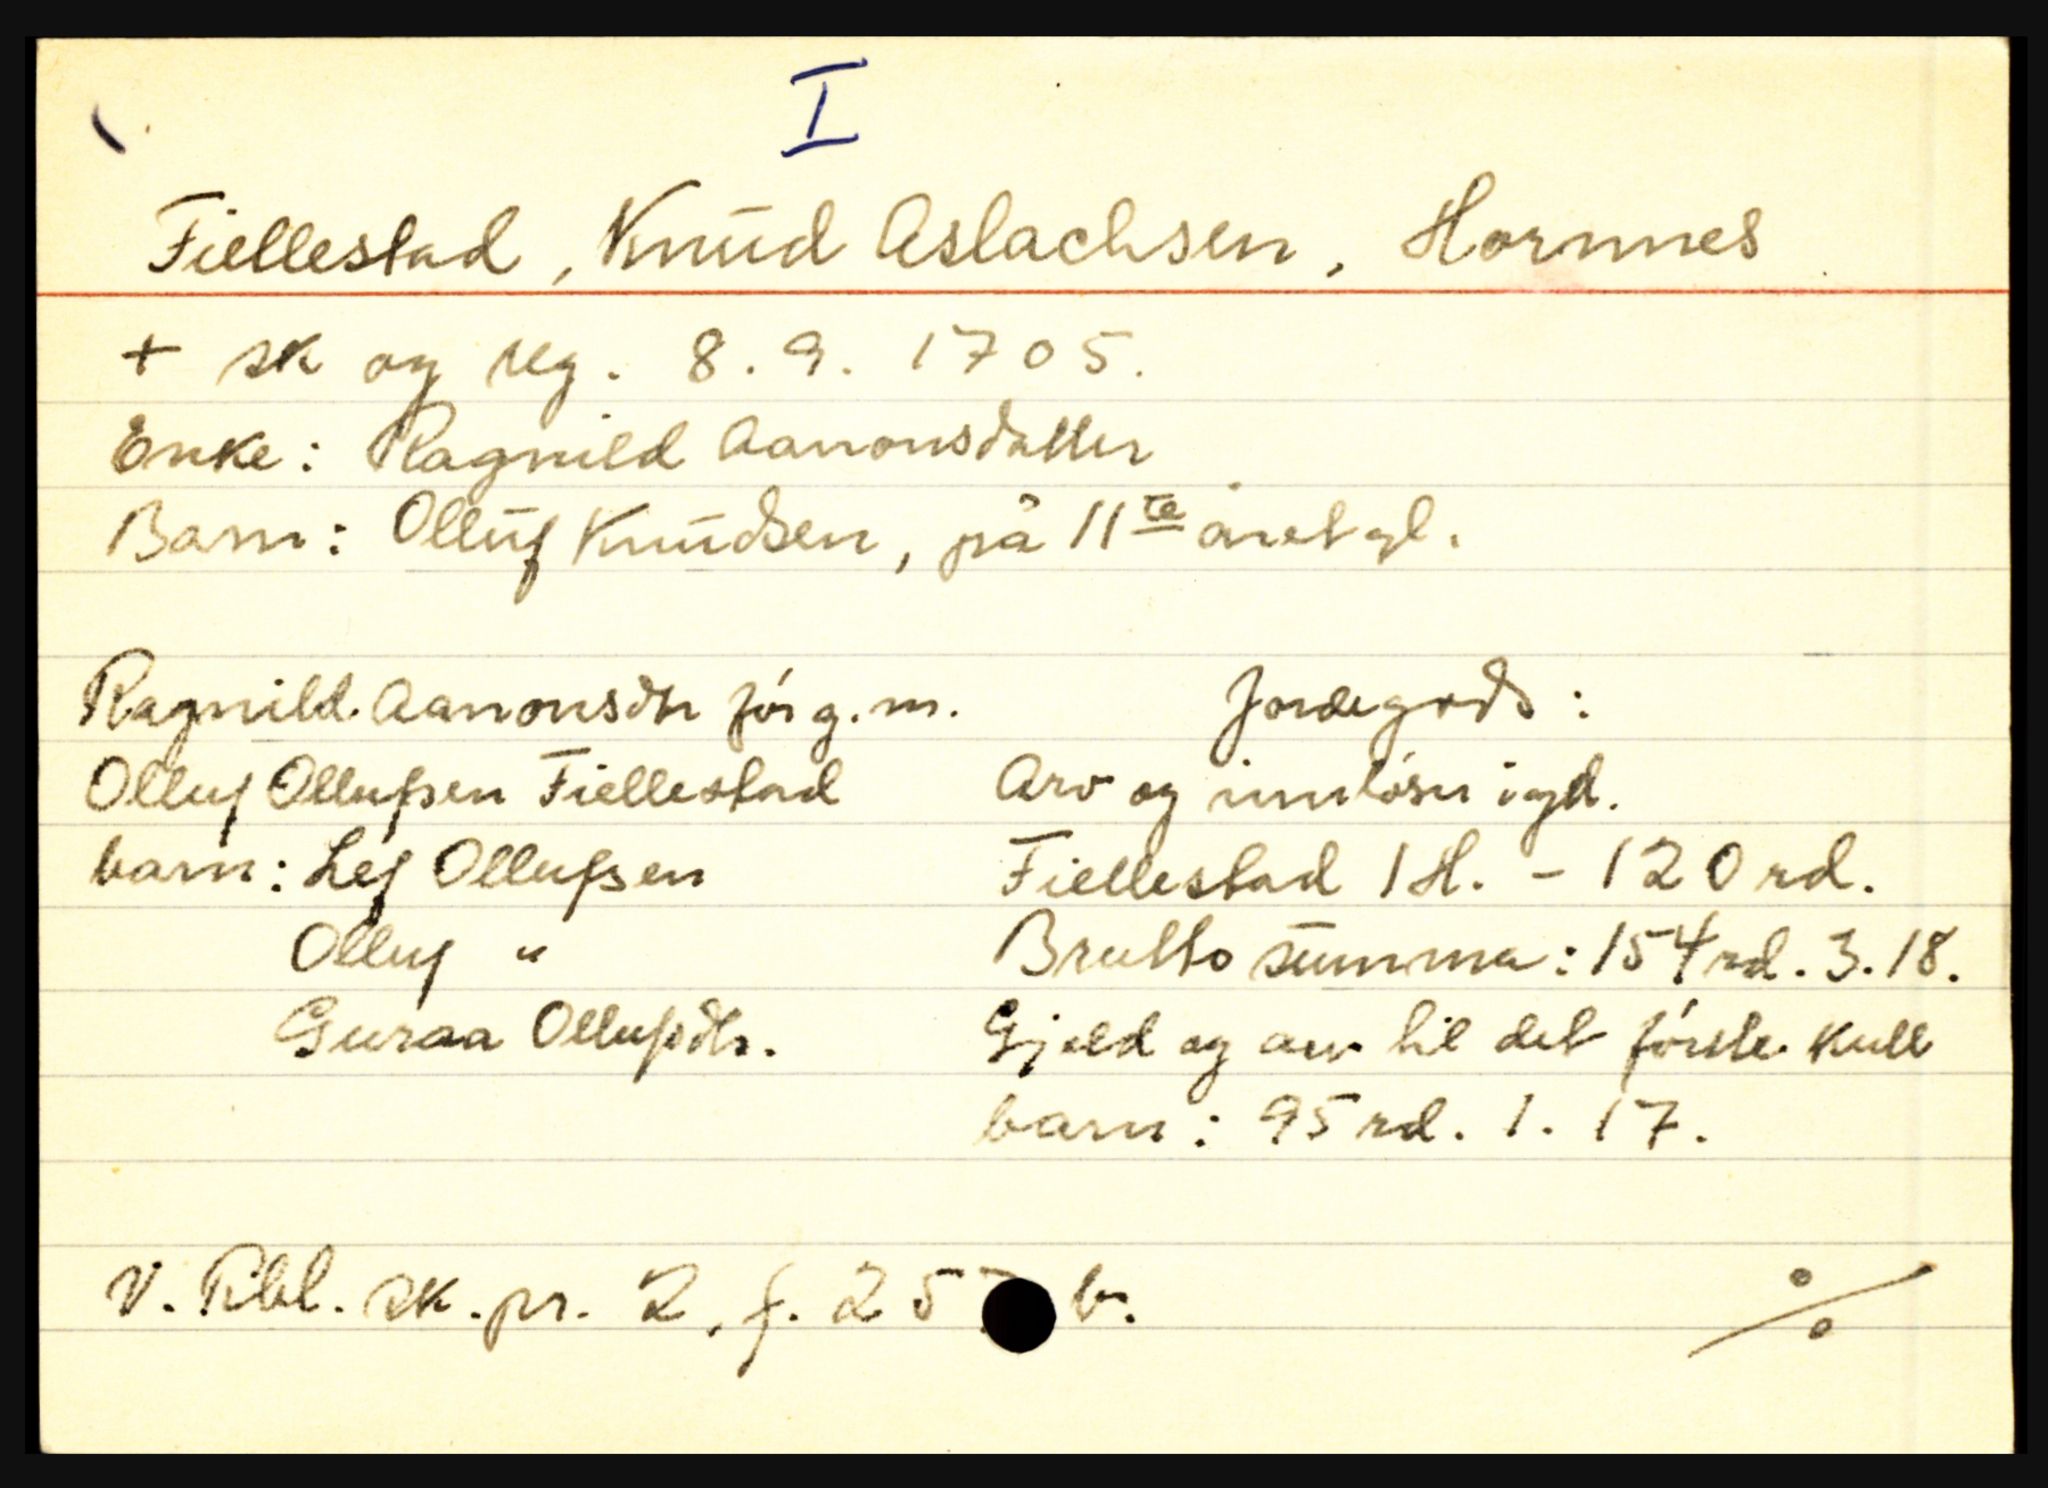 I
Fiellestad, Knud Aslachsen, Hornnes
+ sk og reg. 8.9.1705.
Enke: Ragnild Aanonsdatter
Barn: Olluf Knudsen, på 11te året gl.
Ragnild Aanonsdtr før g. m.
Olluf Ollufsen Fiellestad
barn: Lef Ollufsen
Olluf "
Guraa Ollufsdtr.
Jordegods:
Arv og innløsn i gd.
Fiellestad 1 H. - 120 rd.
Brutto summa: 154 rd. 3. 18.
Gjeld og arv til det første kull
barn: 95 rd. 1. 17.
V. Rbl. sk. pr. 2, f. 25 b.
%